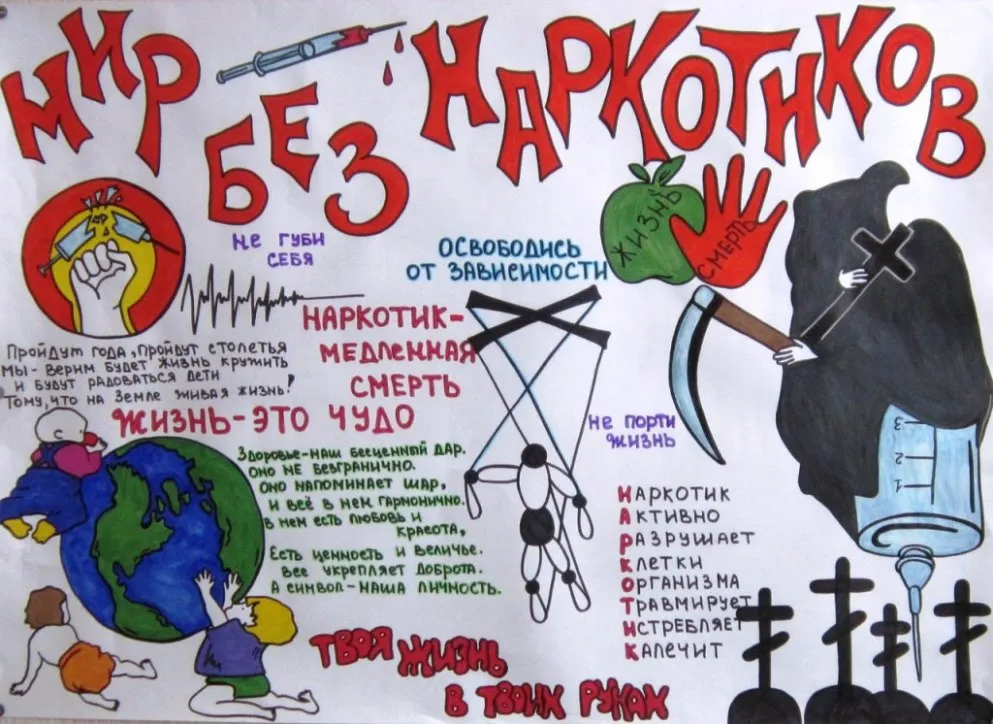 МИР
БЕЗ
НАРКОТИКОВ
НЕ ГУБИ
СЕБЯ
ОСВОБОДИСЬ
ОТ ЗАВИСИМОСТИ
ЖИЗНЬ
СМЕРТЬ
НАРКОТИК-
МЕДЛЕННАЯ
СМЕРТЬ
ПРОЙДУТ ГОДА, ПРОЙДУТ СТОЛЕТЬЯ
МЫ - ВЕРИМ БУДЕТ ЖИЗНЬ КРУЖИТЬ
И БУДУТ РАДОВАТЬСЯ ДЕТИ
ТОМУ, ЧТО НА ЗЕМЛЕ ЖИВАЯ ЖИЗНЬ!
ЖИЗНЬ-ЭТО ЧУДО
ЗДОРОВЬЕ-НАШ БЕСЦЕННЫЙ ДАР.
ОНО НЕ БЕЗГРАНИЧНО.
ОНО НАПОМИНАЕТ ШАР,
И ВСЁ В НЕМ ГАРМОНИЧНО.
В НЕМ ЕСТЬ ЛЮБОВЬ И
КРАСОТА,
ЕСТЬ ЦЕННОСТЬ И ВЕЛИЧЬЕ.
ВСЕ УКРЕПЛЯЕТ ДОБРОТА.
А СИМВОЛ-НАША ЛИЧНОСТЬ.
НЕ ПОРТИ
ЖИЗНЬ
НАРКОТИК
АКТИВНО
РАЗРУШАЕТ
КЛЕТКИ
ОРГАНИЗМА
ТРАВМИРУЕТ
ИСТРЕБЛЯЕТ
КАЛЕЧИТ
3
2
1
ТВОЯ ЖИЗНЬ
В ТВОИХ РУКАХ